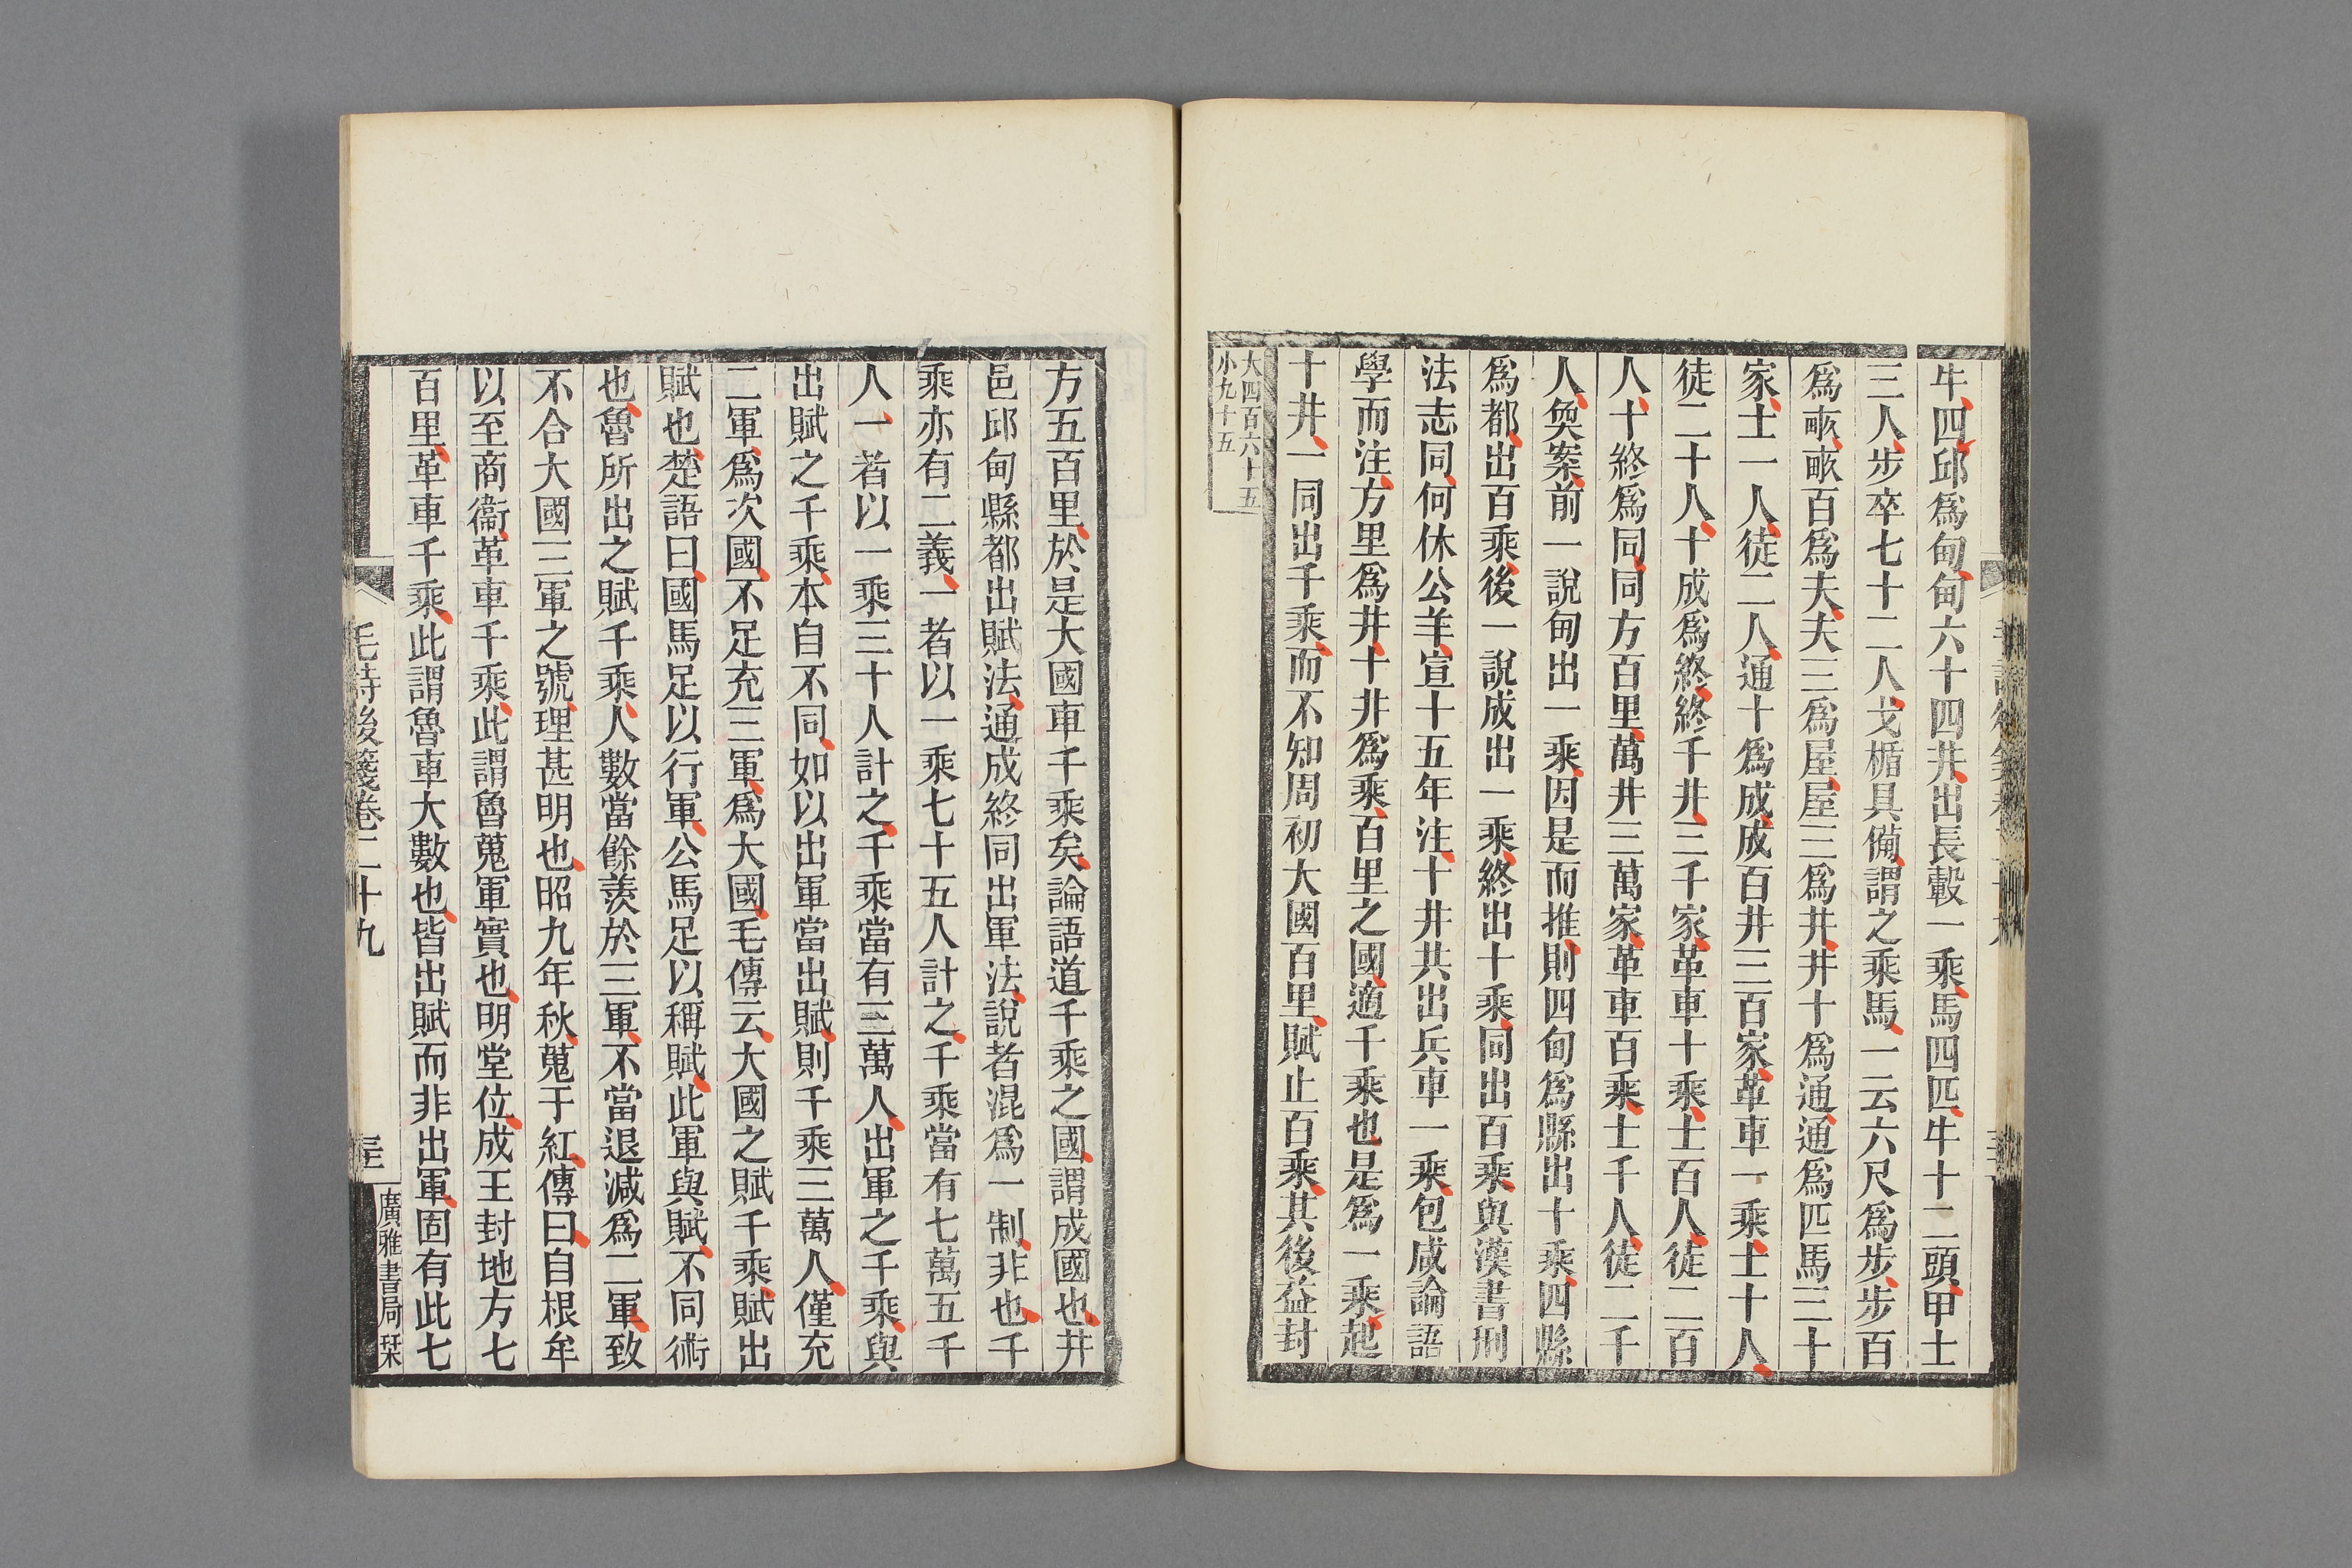 牛四邱爲甸甸六十四井出長轂一乘馬四匹牛十二頭甲士
三人步卒七十二人戈楯具備謂之乘馬一云六尺爲步步百
爲畞畞百爲夫夫三爲屋屋三爲井井十爲通通爲匹馬三十
家士一人徒二人通十爲成成百井三百家革車一乘士十人
徒二十人十成爲終終千井三千家革車十乘士百人徒二百
人十終爲同同方百里萬井三萬家革車百乘士千人徒二千
人奐案前一說甸出一乘因是而推則四甸爲縣出十乘四縣
爲都出百乘後一說成出一乘終出十乘同出百乘與漢書刑
法志同何休公羊宣十五年注十井共出兵車一乘包咸論語
學而注方里爲井十井爲乘百里之國適千乘也是爲一乘起
十井一同出千乘而不知周初大國百里賦止百乘其後益封
大四百六十五
小九十五
方五百里於是大國車千乘矣論語道千乘之國謂成國也井
邑邱甸縣都出賦法通成終同出軍法說者混爲一制非也千
乘亦有二義一者以一乘七十五人計之千乘當有七萬五千
人一者以一乘三十人計之千乘當有三萬人出軍之千乘與
出賦之千乘本自不同如以出軍當出賦則千乘三萬人僅充
二軍爲次國不足充三軍爲大國毛傳云大國之賦千乘賦出
賦也楚語曰國馬足以行軍公馬足以稱賦此軍與賦不同術
也魯所出之賦千乘人數當餘羨於三軍不當退減爲二軍致
不合大國三軍之號理甚明也昭九年秋蒐于紅傳曰自根牟
以至商衞革車千乘此謂魯蒐軍實也明堂位成王封地方七
百里革車千乘此謂魯車大數也皆出賦而非出軍固有此七
毛詩後箋卷二十九
廣雅書局栞